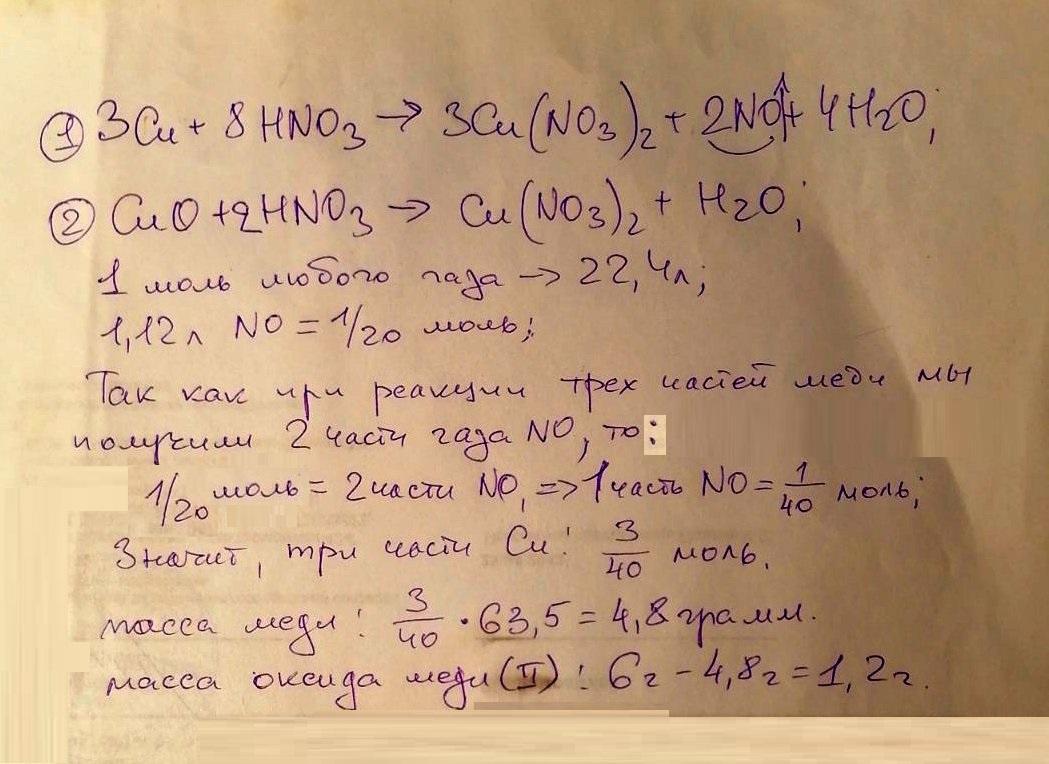 ① 3Cu + 8HNO₃ → 3Cu(NO₃)₂ + 2NO↑ + 4H₂O;
② CuO + 2HNO₃ → Cu(NO₃)₂ + H₂O;
1 моль любого газа → 22,4л;
1,12л NO = 1/20 моль;
Так как при реакции трех частей меди мы
получили 2 части газа NO, то:
1/20 моль = 2 части NO, => 1 часть NO = 1/40 моль;
Значит, три части Cu: 3/40 моль.
масса меди: 3/40 · 63,5 = 4,8 грамм.
масса оксида меди (II): 6г - 4,8г = 1,2г.